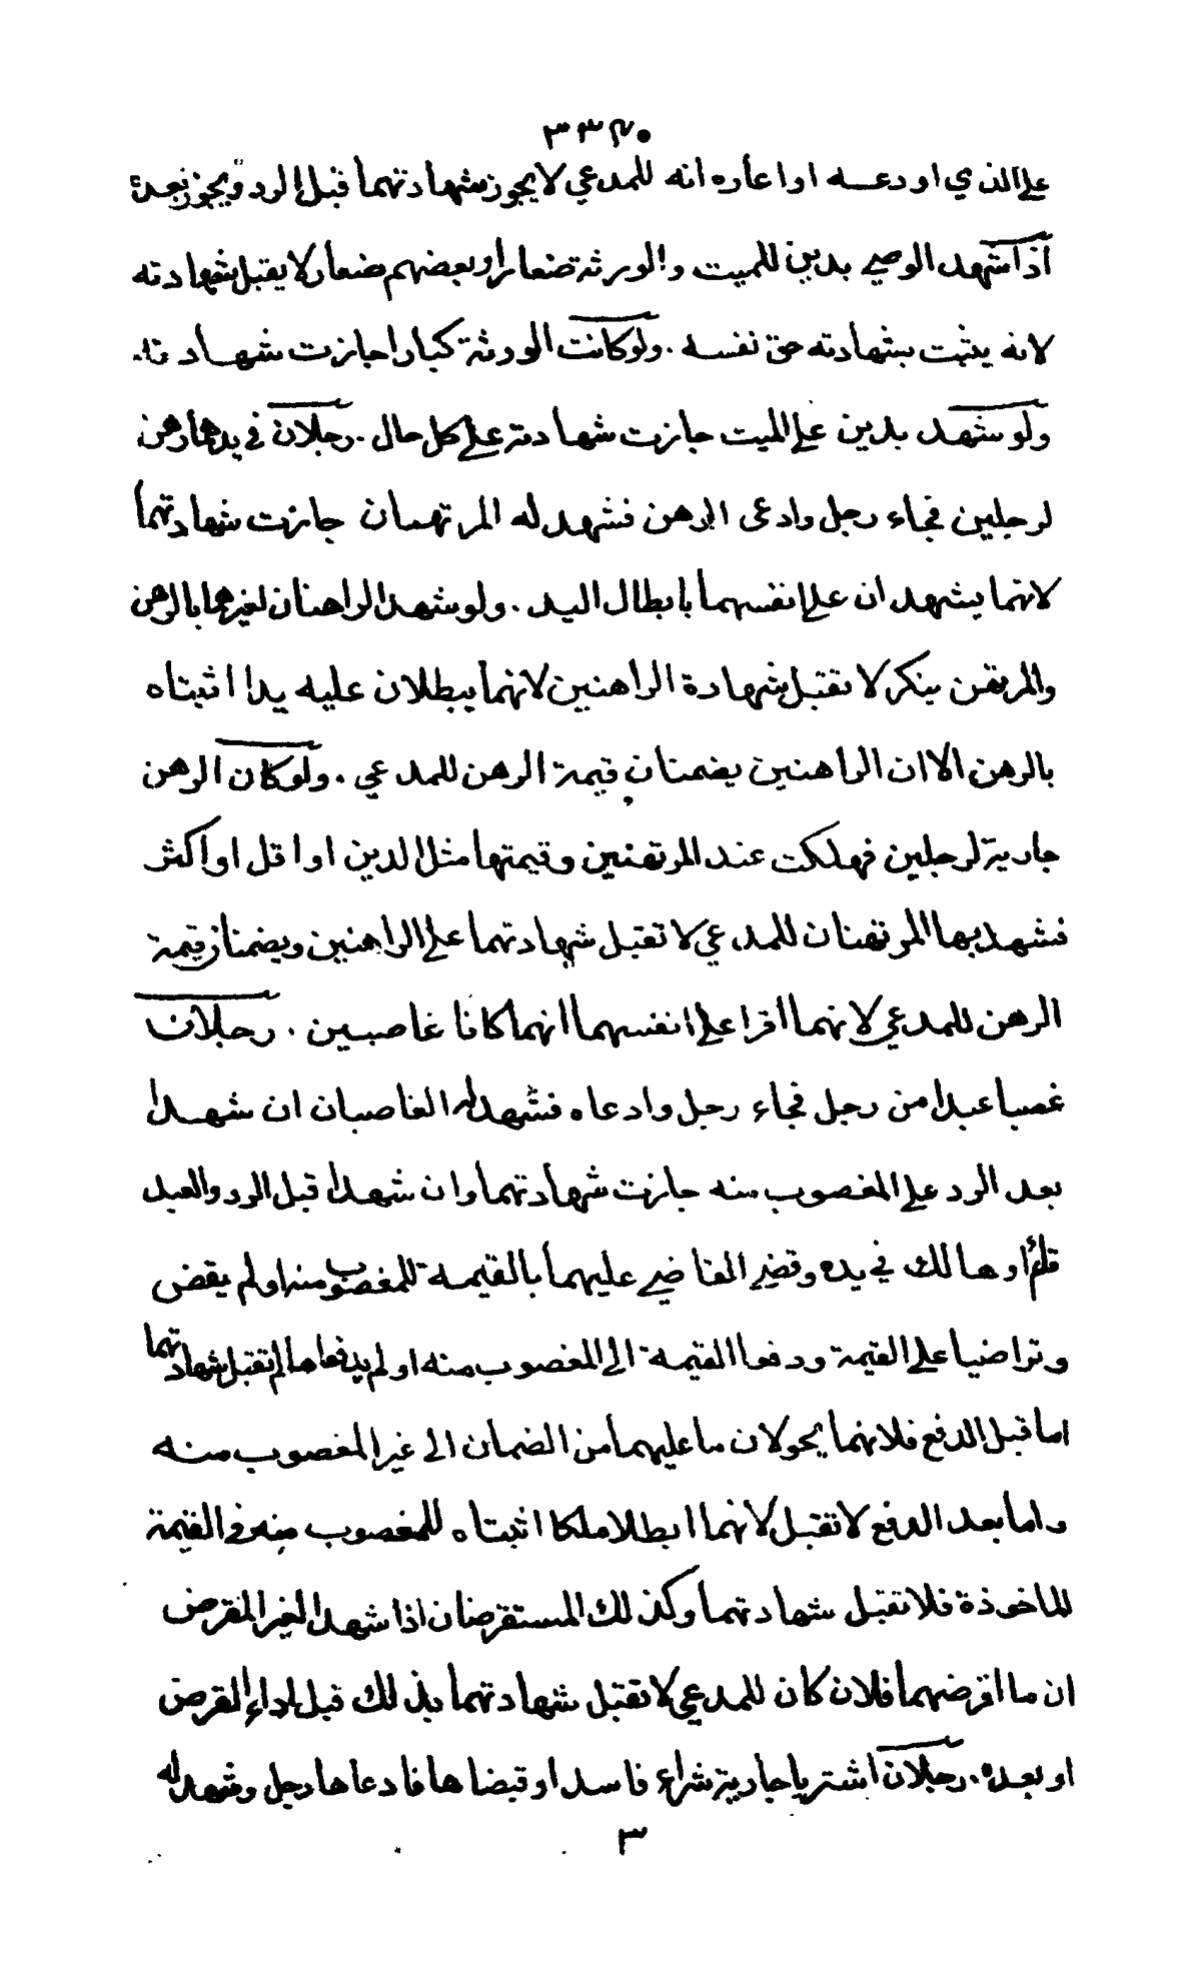 ٣٣٢٠
على الذي اودعه او اعاره انه للمدعي لا يجوز شهادتهما قبل الرد ويجوز بعده
اذا شهد الوصي بدين للميت والورثة صغار او بعضهم صغار لا يقبل شهادته
لانه يثبت بشهادته حق نفسه . ولو كانت الورثة كبارا جازت شهادته
ولو شهد بدين على الميت جازت شهادته على كل حال . رجلان في يدهما رهن
لرجلين فجاء رجل وادعى الرهن فشهد له المرتهنان جازت شهادتهما
لانهما يشهدان على انفسهما بابطال اليد . ولو شهد الراهنان لغيرهما بالرهن
والمرتهن ينكر لا تقبل شهادة الراهنين لانهما يبطلان عليه يدا اثبتاه
بالرهن الا ان الراهنين يضمنان قيمة الرهن للمدعي . ولو كان الرهن
جارية لرجلين فهلكت عند المرتهنين وقيمتها مثل الدين او اقل او اكثر
فشهد بها المرتهنان للمدعي لا تقبل شهادتهما على الراهنين ويضمنان قيمة
الرهن للمدعي لانهما اقرا على انفسهما انهما كانا غاصبين . رجلان
غصبا عبدا من رجل فجاء رجل وادعاه فشهد له الغاصبان ان شهدا
بعد الرد على المغصوب منه جازت شهادتهما وان شهدا قبل الرد والعبد
قائم او هالك في يده وقضى القاضي عليهما بالقيمة للمغصوب منه او لم يقض
وتراضيا على القيمة ودفعا القيمة الى المغصوب منه او لم يدفعاها لم تقبل شهادتهما
اما قبل الدفع فلانهما يحولان ما عليهما من الضمان الى غير المغصوب منه
واما بعد الدفع لا تقبل لانهما ابطلا ملكا اثبتاه للمغصوب منه في القيمة
الماخوذة فلا تقبل شهادتهما وكذلك المستقرضان اذا شهدا لغير المقرض
ان ما اقرضهما فلان كان للمدعي لا تقبل شهادتهما بذلك قبل اداء القرض
او بعده . رجلان اشتريا جارية شراء فاسدا وقبضاها فادعاها رجل وشهد له
٣